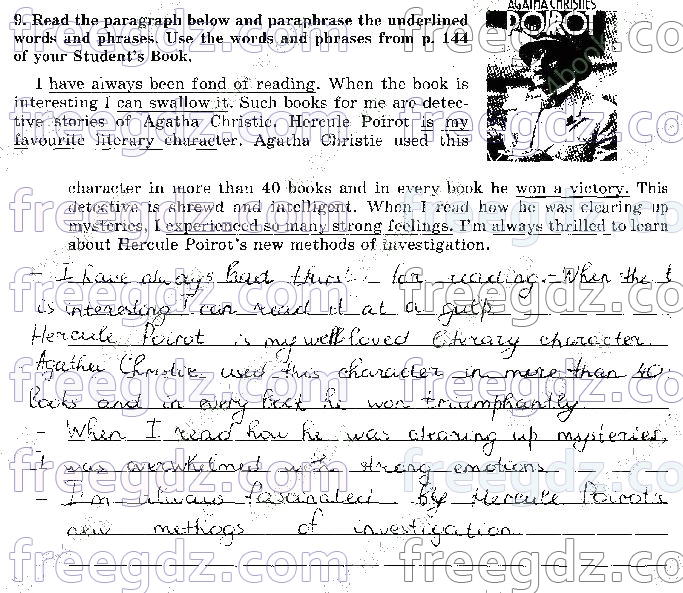 AGATHA CHRISTIE'S
POIROT
9. Read the paragraph below and paraphrase the underlined
words and phrases. Use the words and phrases from p. 144
of your Student's Book.
I have always been fond of reading. When the book is
interesting I can swallow it. Such books for me are detec-
tive stories of Agatha Christie. Hercule Poirot is my
favourite literary character. Agatha Christie used this
character in more than 40 books and in every book he won a victory. This
detective is shrewd and intelligent. When I read how he was clearing up
mysteries, I experienced so many strong feelings. I'm always thrilled to learn
about Hercule Poirot's new methods of investigation.
- I have always had thirst for reading. - When the
is interesting I can read it at a gulp
Hercule Poirot is my well loved literary character.
Agatha Christie used this character in more than 40
books and in every book he won triumphantly.
- When I read how he was clearing up mysteries,
I was overwhelmed with strong emotions
- I'm always fasainated by Hercule Poirot's
new methogs of investigation
freegdz.com